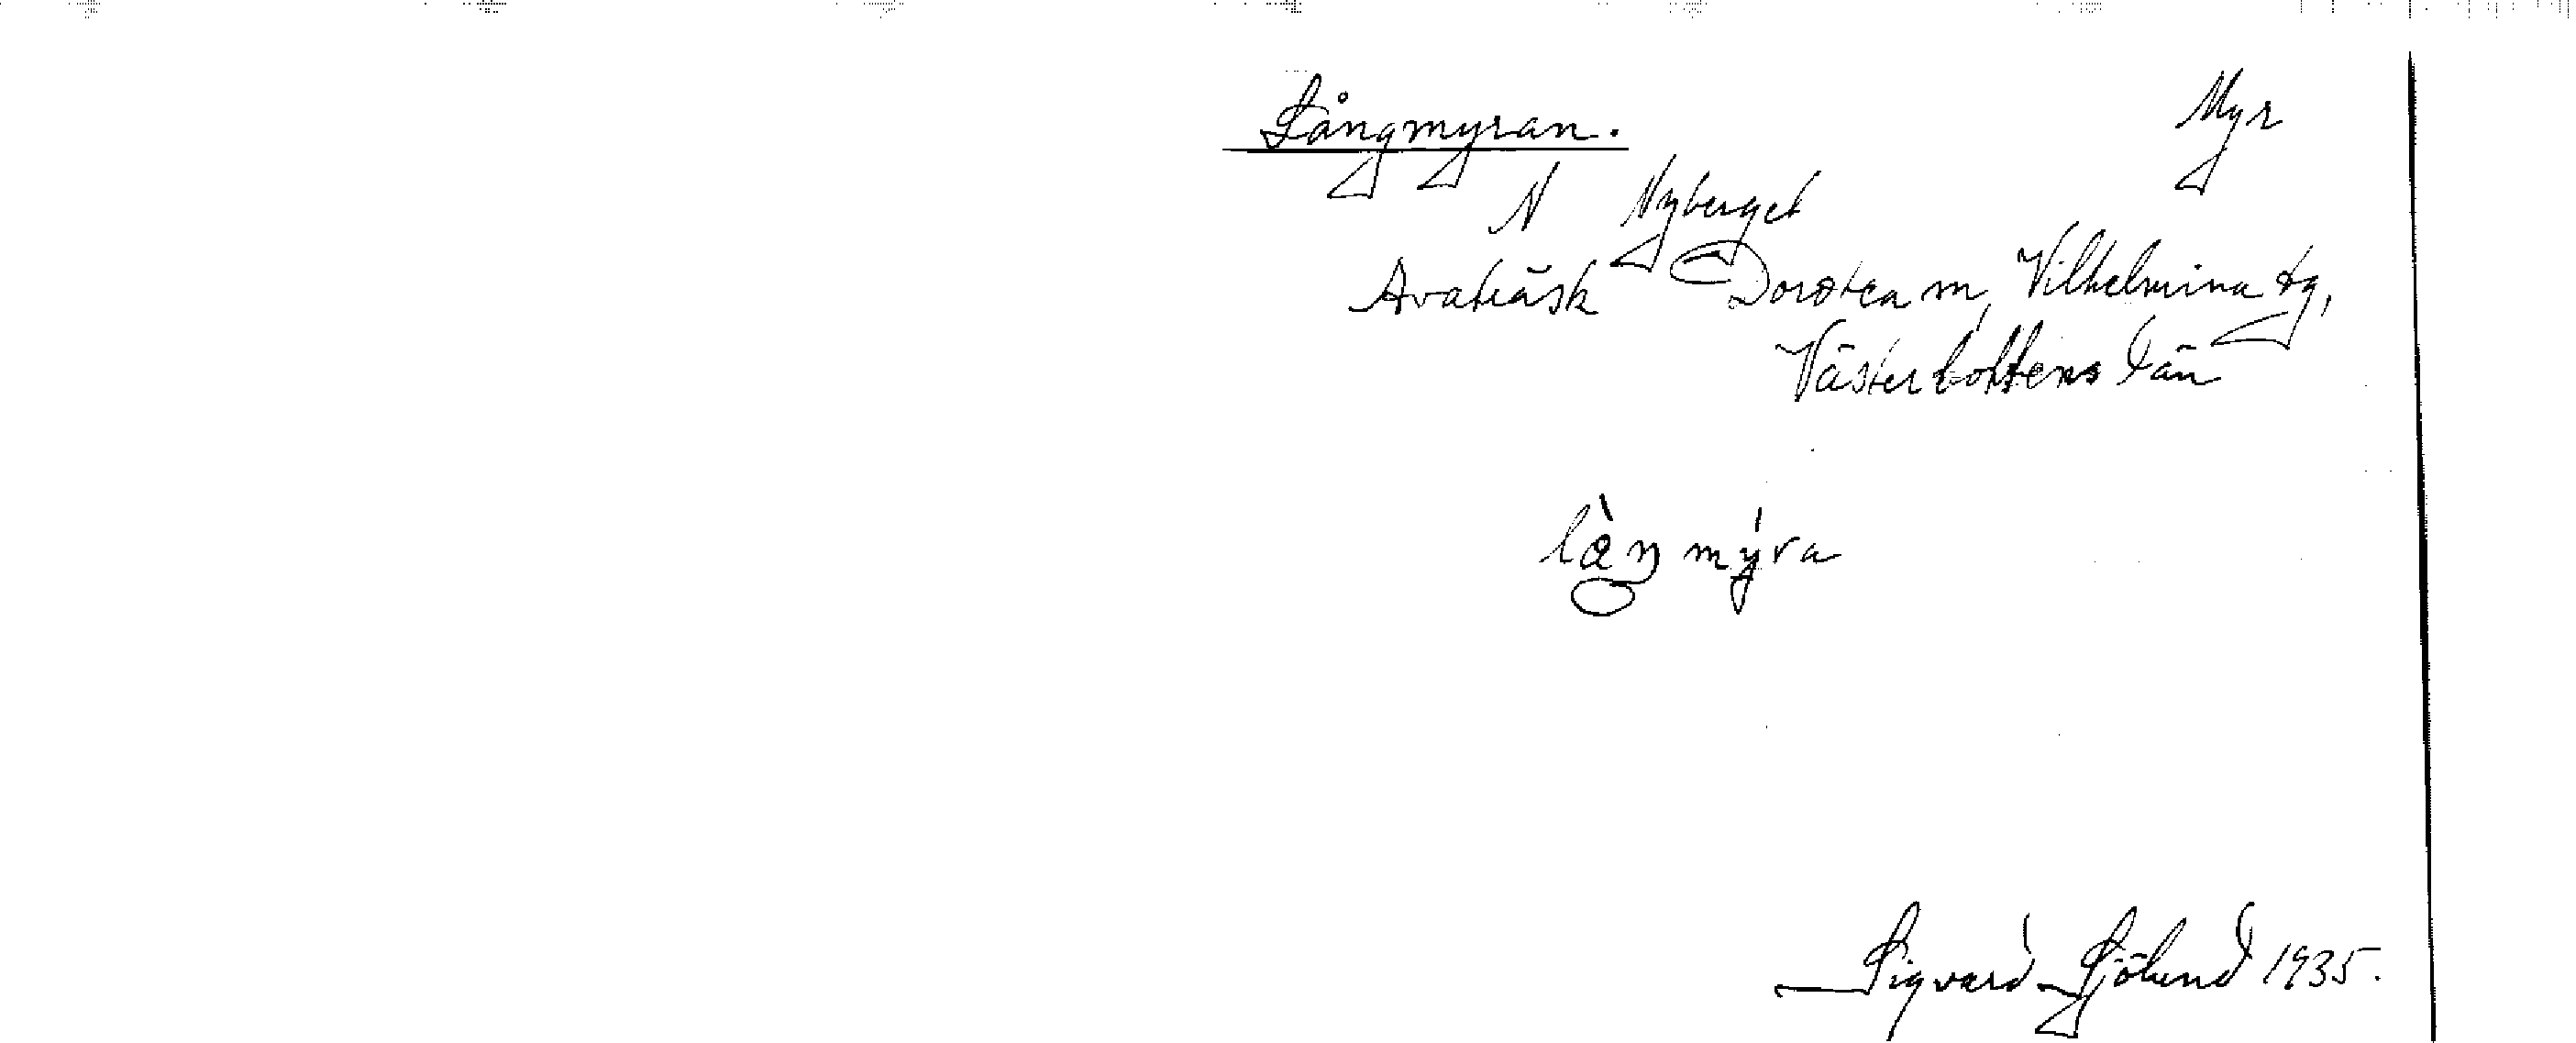 Långmyran. Myr
N Nyberget
Avaträsk Dorotea m, Vilhelmina tg,
Västerbottens län
làŋ mýra
Sigvard Sjölund 1935.